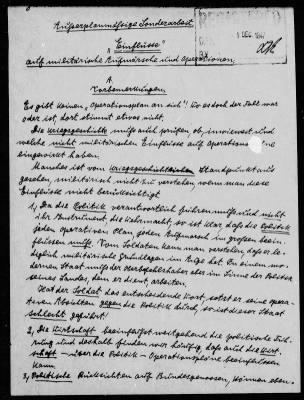 Außerplanmäßige Sonderarbeit
1 DEC 1947
„Einflüsse“
auf militärische Aufmärsche und Operationen.
A.
Vorbemerkungen
Es gibt keinen „Operationsplan an sich“! Wo es doch der Fall war
oder ist, dort stimmt etwas nicht.
Die Kriegsgeschichte muß auch prüfen, ob, inwieweit und
welche nicht militärischen Einflüsse auf Operationspläne
eingewirkt haben.
Manches ist vom kriegsgeschichtlichen Standpunkt aus
gesehen militärisch nicht zu verstehen, wenn man diese
Einflüsse nicht berücksichtigt.
1.) Da die Politik verantwortlich führen muß und nicht
ihr Instrument, die Wehrmacht, so ist klar, daß die Politik
jeden operativen Plan, jeden Aufmarsch im großen beein-
flussen muß. Vom Soldaten kann man verstehen, daß er le-
diglich militärische Grundlagen im Auge hat. In einem mo-
dernen Staat muß der Herbefehlshaber aber im Sinne der Politik
seines Landes, dem er dient, arbeiten.
Hat der Soldat das entscheidende Wort, setzt er seine opera-
tiven Absichten gegen die Politik durch, so ist dieser Staat
schlecht geführt!
2.) Die Wirtschaft beeinflußt weitgehend die politische Füh-
rung und deshalb finden wir häufig, daß auch die Wirt-
schaft – über die Politik – Operationspläne beeinflussen
kann.
3.) Politische Rücksichten auf Bundesgenossen, können eben-